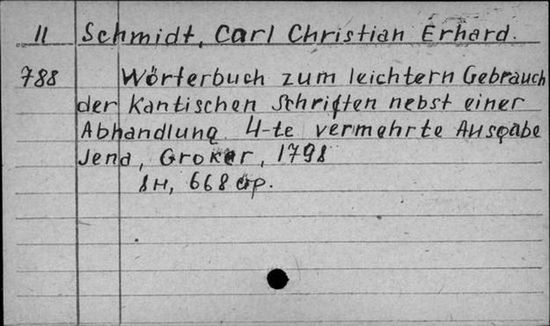 II Schmidt, Carl Christian Erhard.
788 Wörterbuch zum leichtern Gebrauch
der Kantischen Schriften nebst einer
Abhandlung. 4-te vermehrte Ausgabe
Jena, Croker, 1798
8H, 668 cтр.